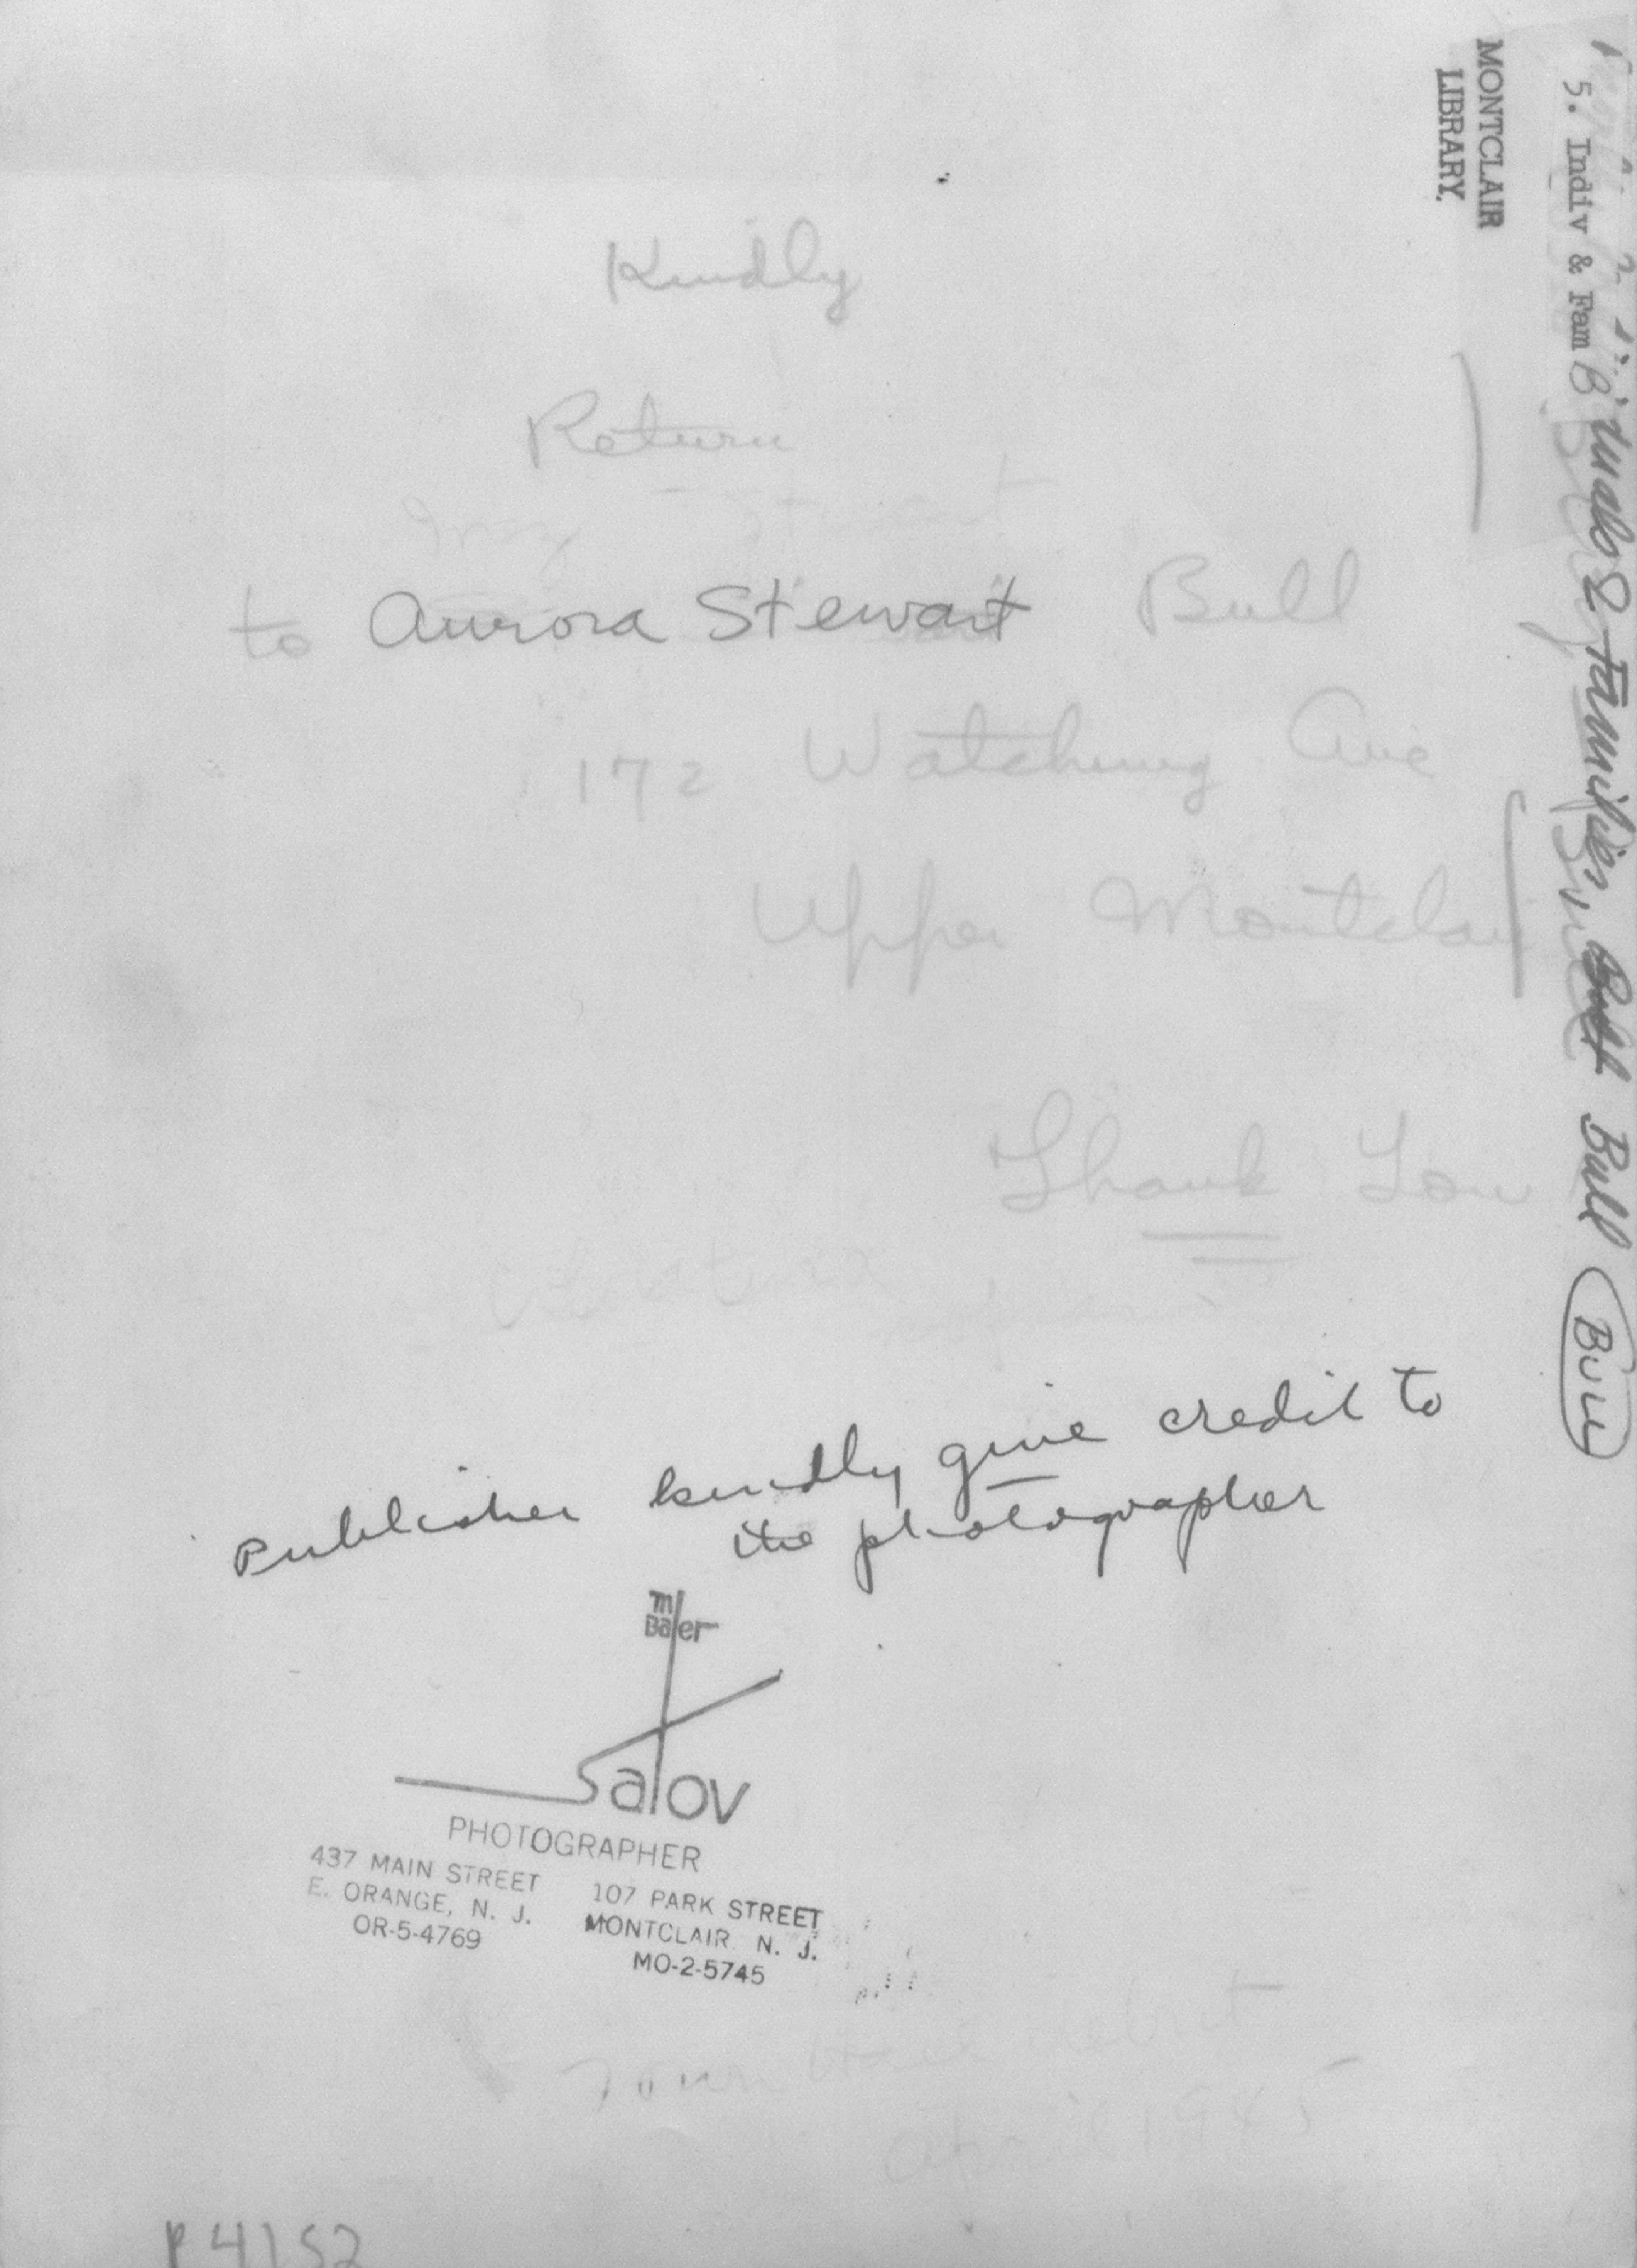 MONTCLAIR
LIBRARY.
5. Indiv & Fam B
& Families, Bull
Bull
Kindly
Return
to Aurora Stewart Bull
172 Watchung Ave
Upper Montclair
Thank You
Publisher kindly give credit to
the photographer
m Baer
Satov
PHOTOGRAPHER
437 MAIN STREET
E. ORANGE, N. J.
OR-5-4769
107 PARK STREET
MONTCLAIR N. J.
MO-2-5745
Town Hall debut
April 1945
P4152